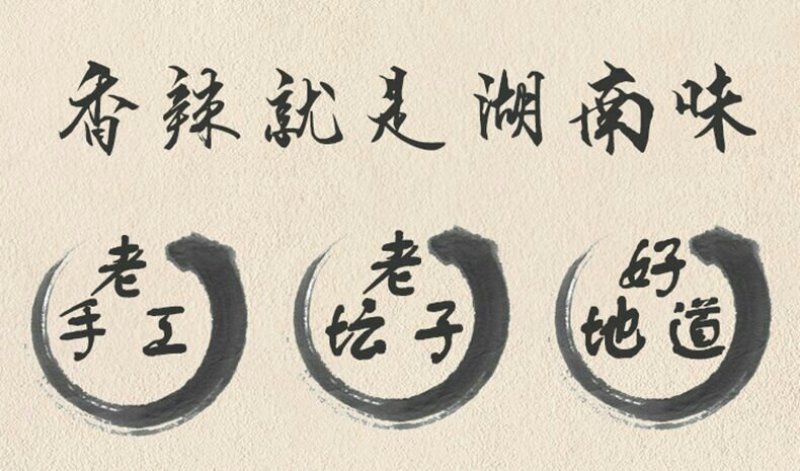 香辣就是湖南味
老手工
老坛子
好地道